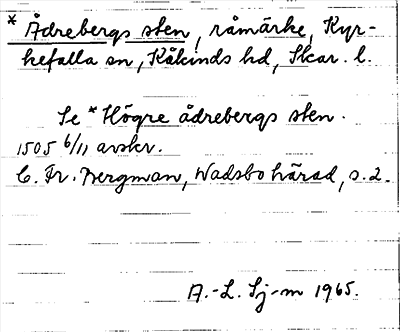 * Ådrebergs sten, råmärke, Kyr-
kefalla sn, Kåkinds hd, Skar. l.
Se * Högre ådrebergs sten.
1505 6/11 avskr.
C. Fr. Bergman, Wadsbo härad, s. 2.
A.-L. Sj-m 1965.